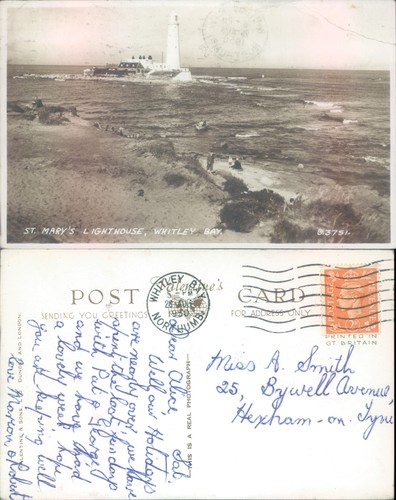 ST. MARY'S LIGHTHOUSE, WHITLEY BAY.
B.3751.
POST CARD
Valentine's
SENDING YOU GREETINGS
FOR ADDRESS ONLY
WHITLEY BAY
1950
NORTHUMB
PRINTED IN
GT. BRITAIN
VALENTINE & SONS, LTD. DUNDEE AND LONDON
THIS IS A REAL PHOTOGRAPH
Sat.
Dear Alice,
Well our Holidays
are nearly over, we have
spent the last few days
with Pat & George
and we have had
a lovely week hope
you are keeping well
Love Marion & Robert
Miss A. Smith
25, Bywell Avenue,
Hexham-on-Tyne